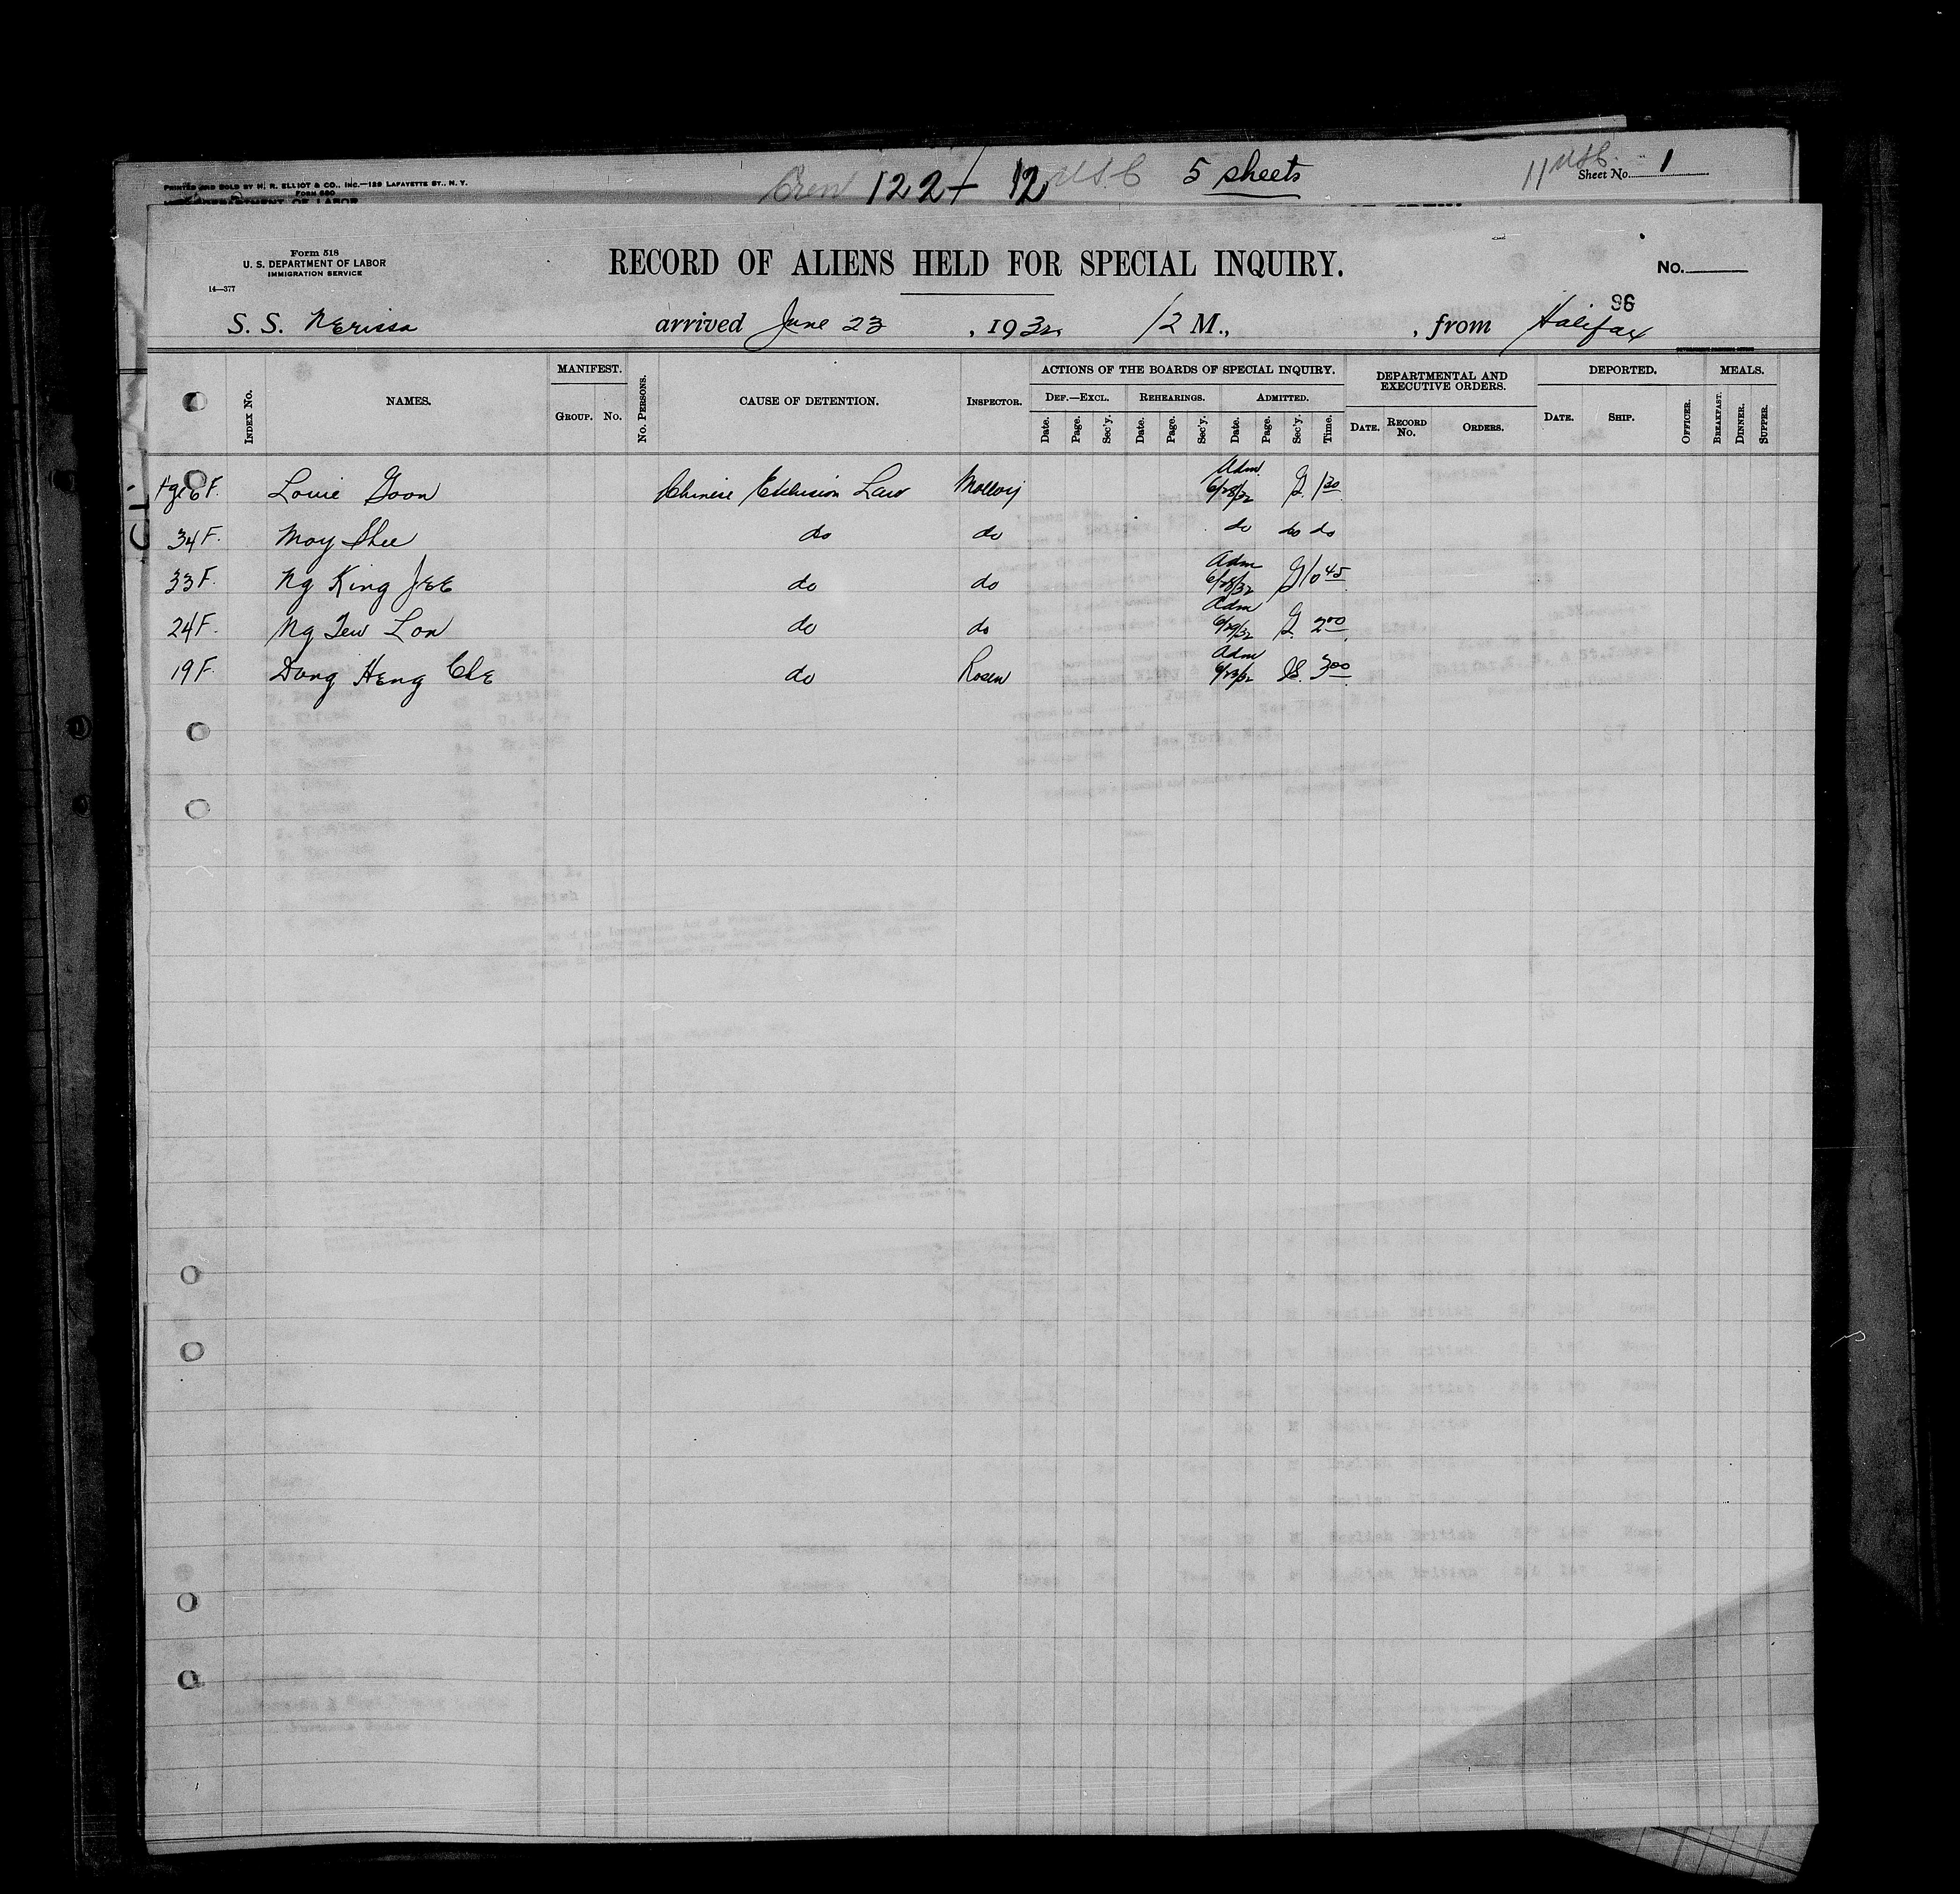 PRINTED AND SOLD BY H. R. ELLIOT & CO., INC.—129 LAFAYETTE ST., N. Y.
FORM 680
Crew 122 + 12 USC 5 sheets
11 USC
Sheet No. 1
DEPARTMENT OF LABOR
Form 518
U. S. DEPARTMENT OF LABOR
IMMIGRATION SERVICE
14—377
RECORD OF ALIENS HELD FOR SPECIAL INQUIRY.
No.
96
S. S. Nerissa arrived June 23, 1932, 12 M., , from Halifax
INDEX NO.
NAMES.
MANIFEST.
GROUP. NO.
NO. PERSONS.
CAUSE OF DETENTION.
INSPECTOR.
ACTIONS OF THE BOARDS OF SPECIAL INQUIRY.
DEF.—EXCL. REHEARINGS. ADMITTED.
Date. Page. Sec'y. Date. Page. Sec'y. Date. Page. Sec'y. Time.
DEPARTMENTAL AND EXECUTIVE ORDERS.
DATE. RECORD No. ORDERS.
DEPORTED.
DATE. SHIP. OFFICER.
MEALS.
BREAKFAST. DINNER. SUPPER.
Age 6 F. Louie Goon Chinese Exclusion Law Molloy Adm 6/28/32 G. 1 30
34 F. Moy Shee do do do do do
33 F. Ng King Jee do do Adm 6/28/32 G 10 45
24 F. Ng Tew Lon do do Adm 6/29/32 G. 2 00
19 F. Dong Heng Che do Rosen Adm 6/23/32 3 00